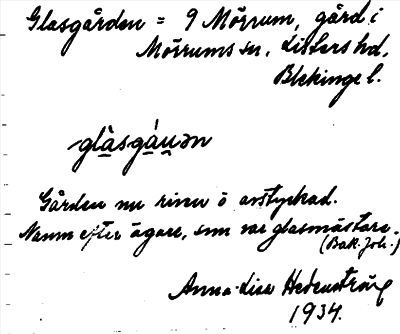 Glasgården = 9 Mörrum, gård i
Mörrums sn, Listers hd,
Blekinge l.
glàsgá̱u̱ən
Gården nu riven o avstyckad.
Namn efter ägare, som var glasmästare.
(Bak. Joh.)
Anna-Lisa Hedenström
1934.